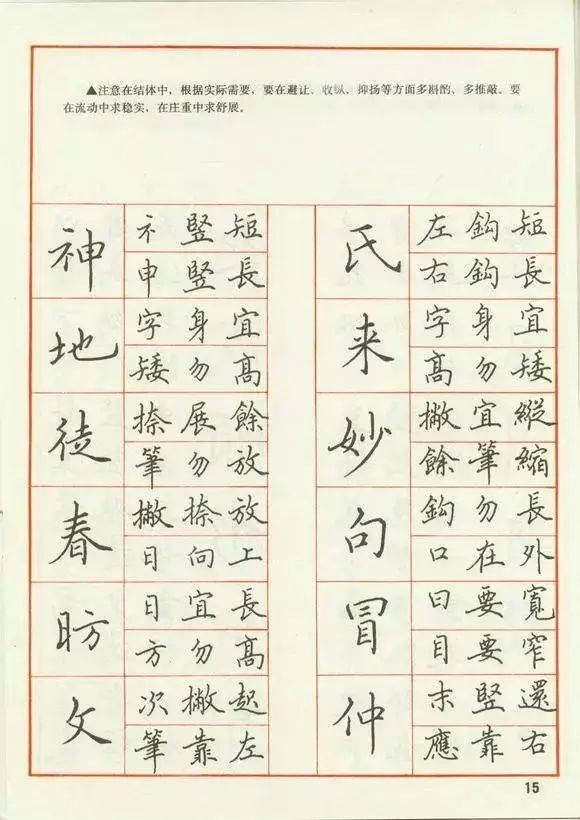 ▲注意在结体中，根据实际需要，要在避让、收纵、抑扬等方面多斟酌，多推敲。要
在流动中求稳实，在庄重中求舒展。
神
礻竪短
申竪長
地
字身宜
矮勿高
徒
捺展餘
筆勿放
春
撇捺放
日向上
昉
日宜長
方勿高
文
次撇起
筆靠左
氏
左鈎短
右鈎長
来
字身宜
高勿矮
妙
撇宜縱
餘筆縮
句
鈎勿長
口在外
冒
曰要寬
目要窄
仲
末竪還
應靠右
15